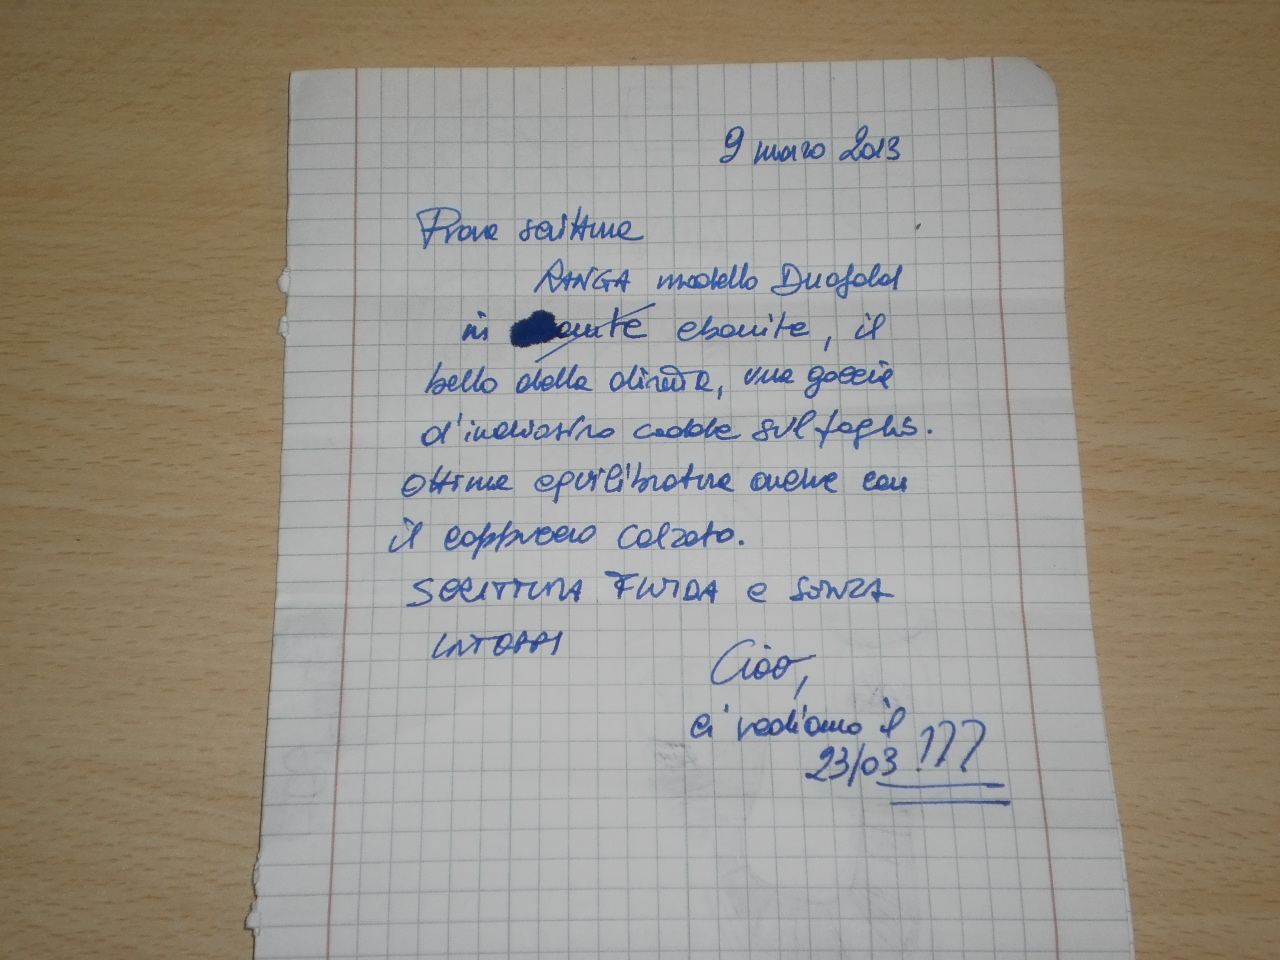 9 marzo 2013
Prova scrittura
RANGA modello Duofold
in ebonite, il
bello della diretta, una goccia
d'inchiostro cadde sul foglio.
Ottima equilibratura anche con
il cappuccio calzato.
SCRITTURA FLUIDA e SENZA
INTOPPI
Ciao,
ci vediamo il
23/03 ???